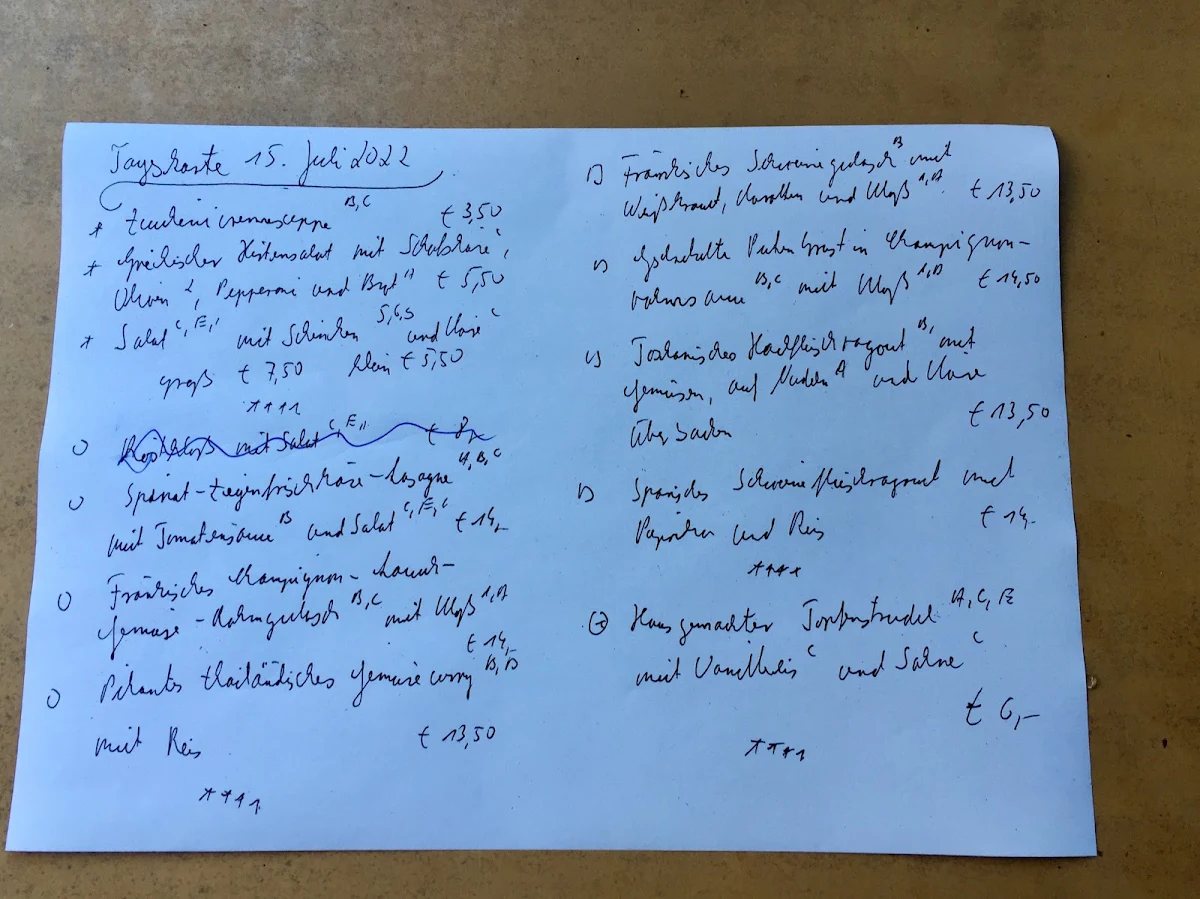 Tageskarte 15. Juli 2022
* Zucchinicremesuppe B,C € 3,50
* Griechischer Hirtensalat mit Schafskäse C,
Oliven 2, Pepperoni und Brot A € 5,50
* Salat C,E,1 mit Schinken 5,6,3 und Käse C
groß € 7,50 klein € 5,50
****
mit Salat C,E,1 € 8,-
Spinat-Ziegenfrischkäse-Lasagne A,B,C
mit Tomatensauce B und Salat C,E,C € 14,-
Fränkisches Champignon-Lauch-
gemüse-Rahmgulasch B,C mit Kloß 1,A
€ 14,-
Pikantes thailändisches Gemüsecurry B,D
mit Reis € 13,50
****
Fränkisches Schweinegulasch B mit
Weißkraut, Karotten und Kloß 1,A € 13,50
Geschnetzelte Putenbrust in Champignon-
rahmsauce B,C mit Kloß 1,A € 14,50
Toskanisches Hackfleischragout B, mit
Gemüsen, auf Nudeln A und Käse
überbacken € 13,50
Spanisches Schweinefleischragout mit
Paprika und Reis € 14,-
****
Hausgemachter Topfenstrudel A,C,E
mit Vanilleeis C und Sahne C
€ 6,-
****